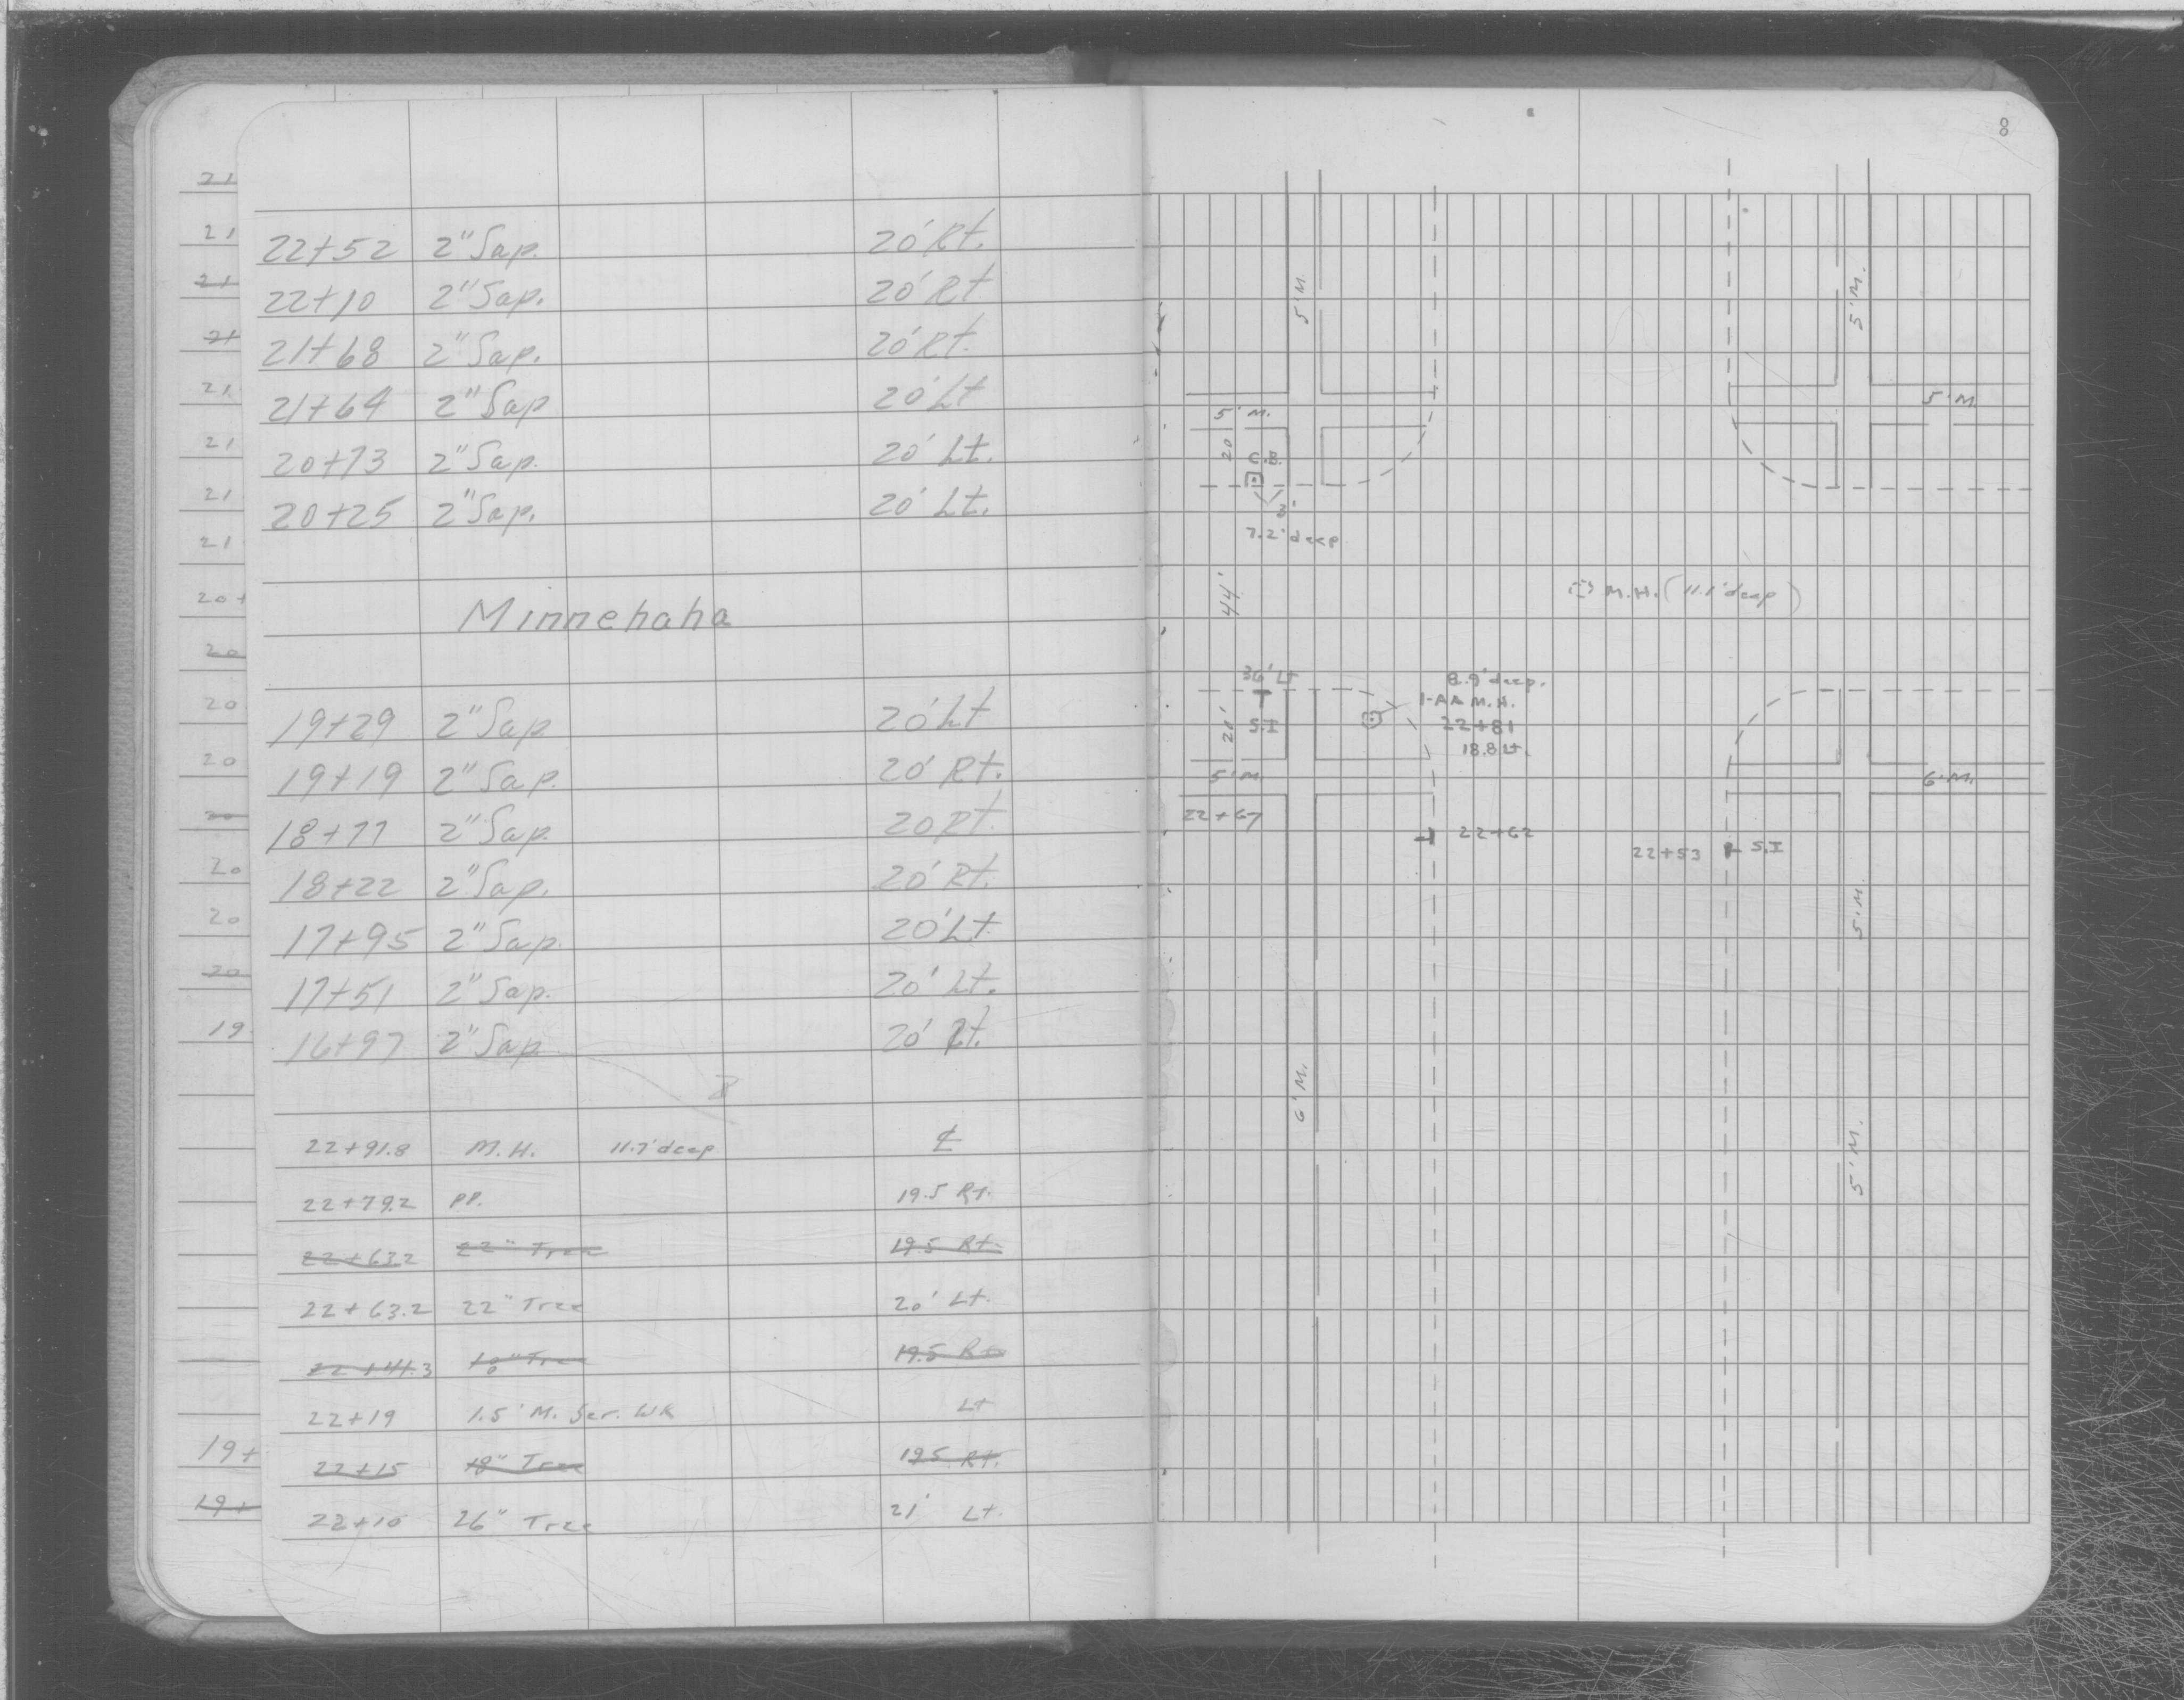 22+52 2" Sap. 20' Rt.
22+10 2" Sap. 20' Rt
21+68 2" Sap. 20' Rt.
21+64 2" Sap 20' Lt
20+73 2" Sap. 20' Lt.
20+25 2" Sap. 20' Lt.
Minnehaha
19+29 2" Sap 20' Lt
19+19 2" Sap. 20' Rt.
18+77 2" Sap. 20 Rt.
18+22 2" Sap. 20' Rt.
17+95 2" Sap. 20' Lt
17+51 2" Sap. 20' Lt.
16+97 2" Sap. 20' Rt.
22+91.8 M.H. 11.7' deep ℄
22+79.2 PP. 19.5 Rt.
22+63.2 22" Tree 19.5 Rt.
22+63.2 22" Tree 20' Lt.
22+41.3 Tree 19.5 Rt
22+19 1.5' M. Ser. Wk Lt
22+15 18" Tree 19.5 Rt.
22+10 26" Tree 21' Lt.
21
21
21
21
21
21
21
21
20+
20
20
20
20
20
20
20
19
19+
19+
8
5' M.
5' M.
5' M.
5' M.
20
C.B.
2'
7.2' deep
44'
M.H. (11.1' deep)
36' Lt
8.9' deep.
1-AA M.H.
22+81
18.8 Lt.
20'
S.I
5' M.
6' M.
22+67
22+62
22+53 S.I
5' M.
6' M.
5' M.